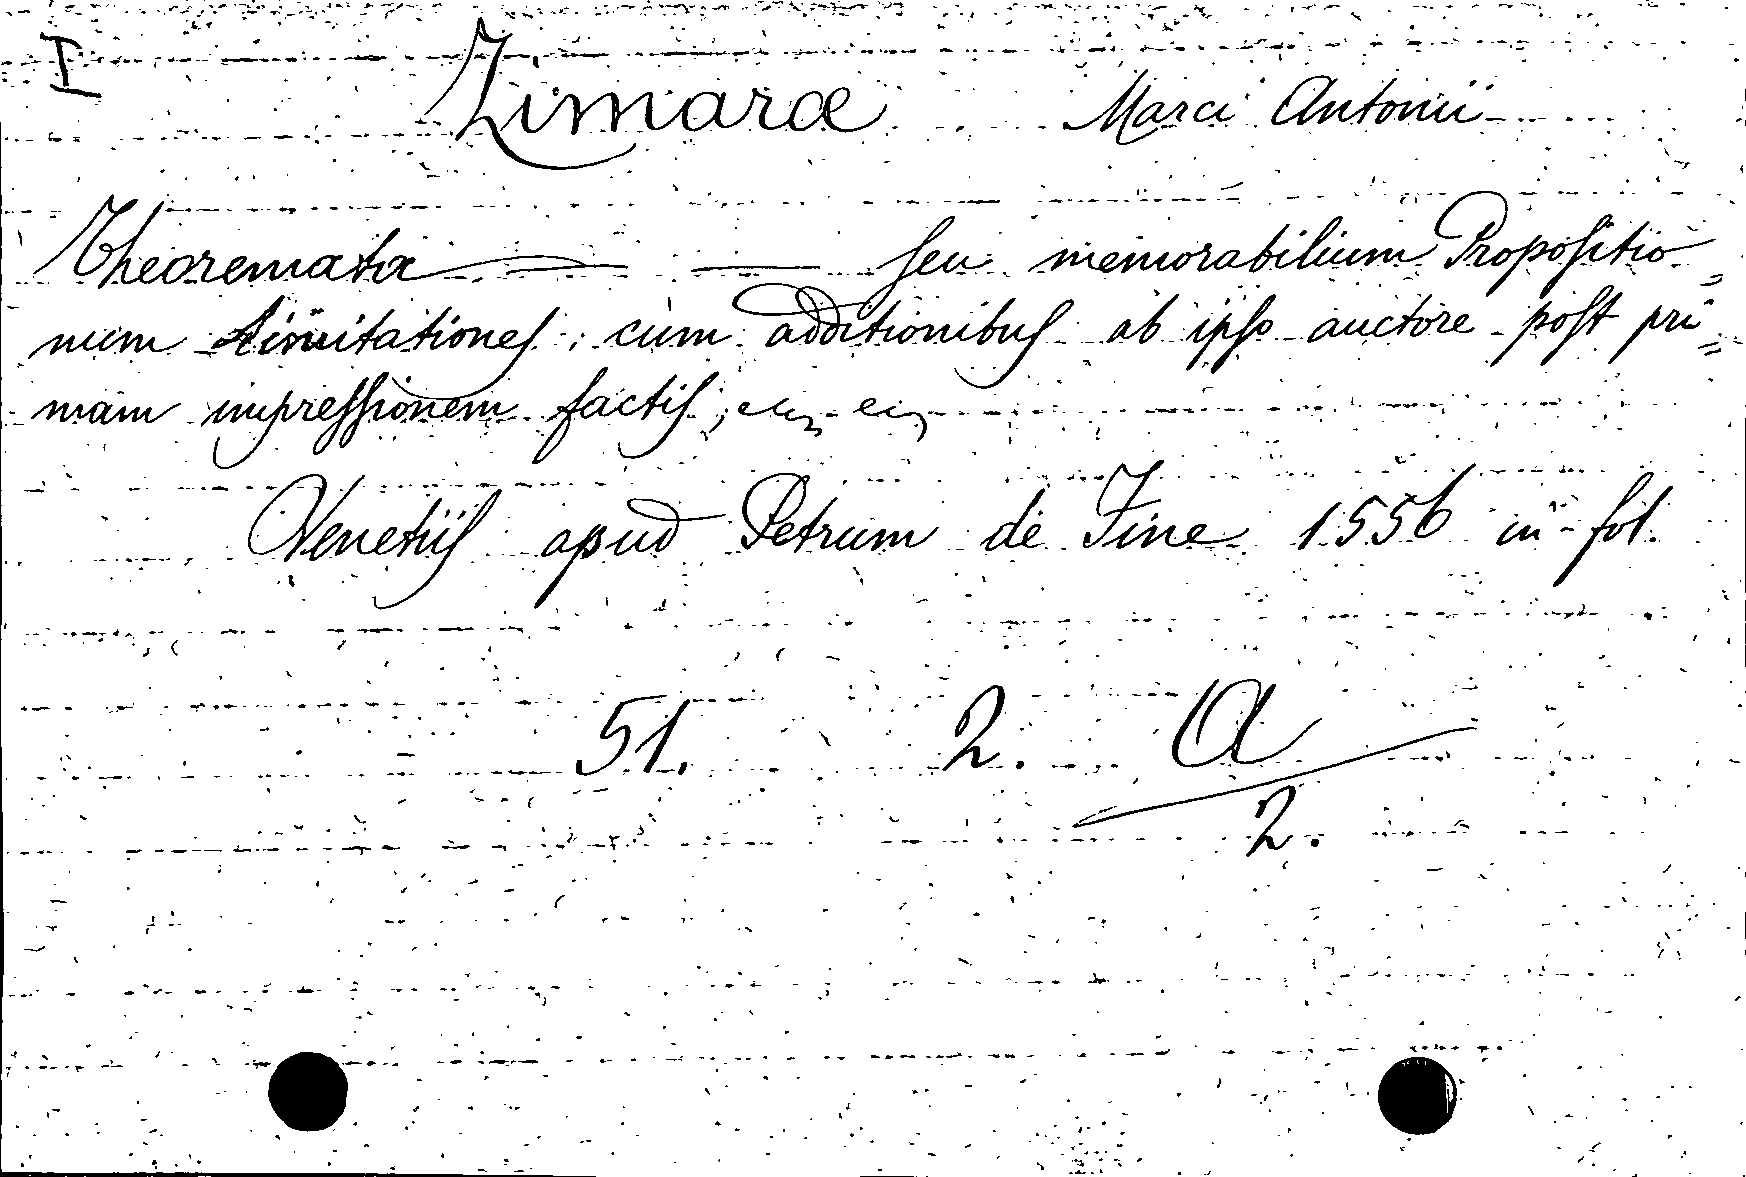 I
Zimaræ Marci Antonii
Theoremata — — seu memorabilium Propositio-
num limitationes; cum additionibus ab ipso auctore post pri=
mam impressionem factis;
Venetiis apud Petrum de Fine 1556 in-fol.
51. 2. A
2.